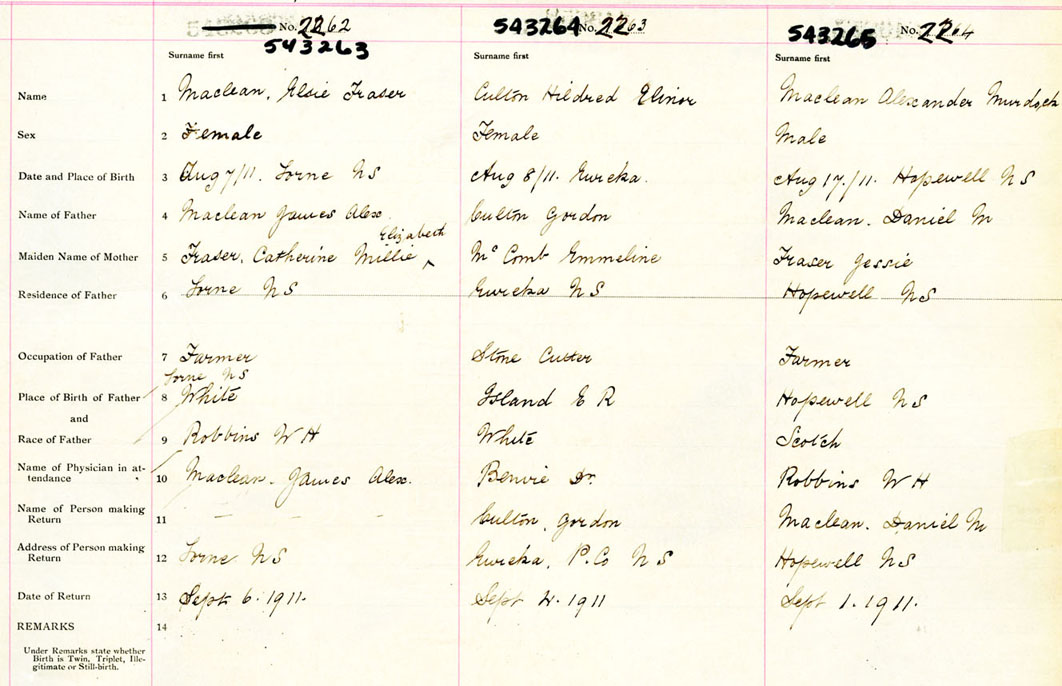 No. 2262 543264 No. 2263 543265 No. 2264
543263
Surname first Surname first Surname first
Name 1 Maclean, Elsie Fraser Culton Hildred Elinor Maclean Alexander Murdoch
Sex 2 Female Female Male
Date and Place of Birth 3 Aug 7/11. Lorne NS Aug 8/11. Eureka. Aug 17./11. Hopewell NS
Name of Father 4 Maclean James Alex. Culton Gordon Maclean. Daniel M
Elizabeth
Maiden Name of Mother 5 Fraser, Catherine Millie ^ Mc Comb Emmeline Fraser Jessie
Residence of Father 6 Lorne NS Eureka NS Hopewell NS
Occupation of Father 7 Farmer Stone Cutter Farmer
Lorne NS
Place of Birth of Father 8 White Island E R Hopewell NS
and
Race of Father 9 Robbins W H White Scotch
Name of Physician in at-
tendance 10 Maclean. James Alex. Benvie Dr. Robbins W H
Name of Person making
Return 11 — — Culton, Gordon Maclean. Daniel M
Address of Person making
Return 12 Lorne NS Eureka, P.Co NS Hopewell NS
Date of Return 13 Sept 6. 1911. Sept 4. 1911 Sept 1. 1911.
REMARKS 14
Under Remarks state whether
Birth is Twin, Triplet, Ille-
gitimate or Still-birth.